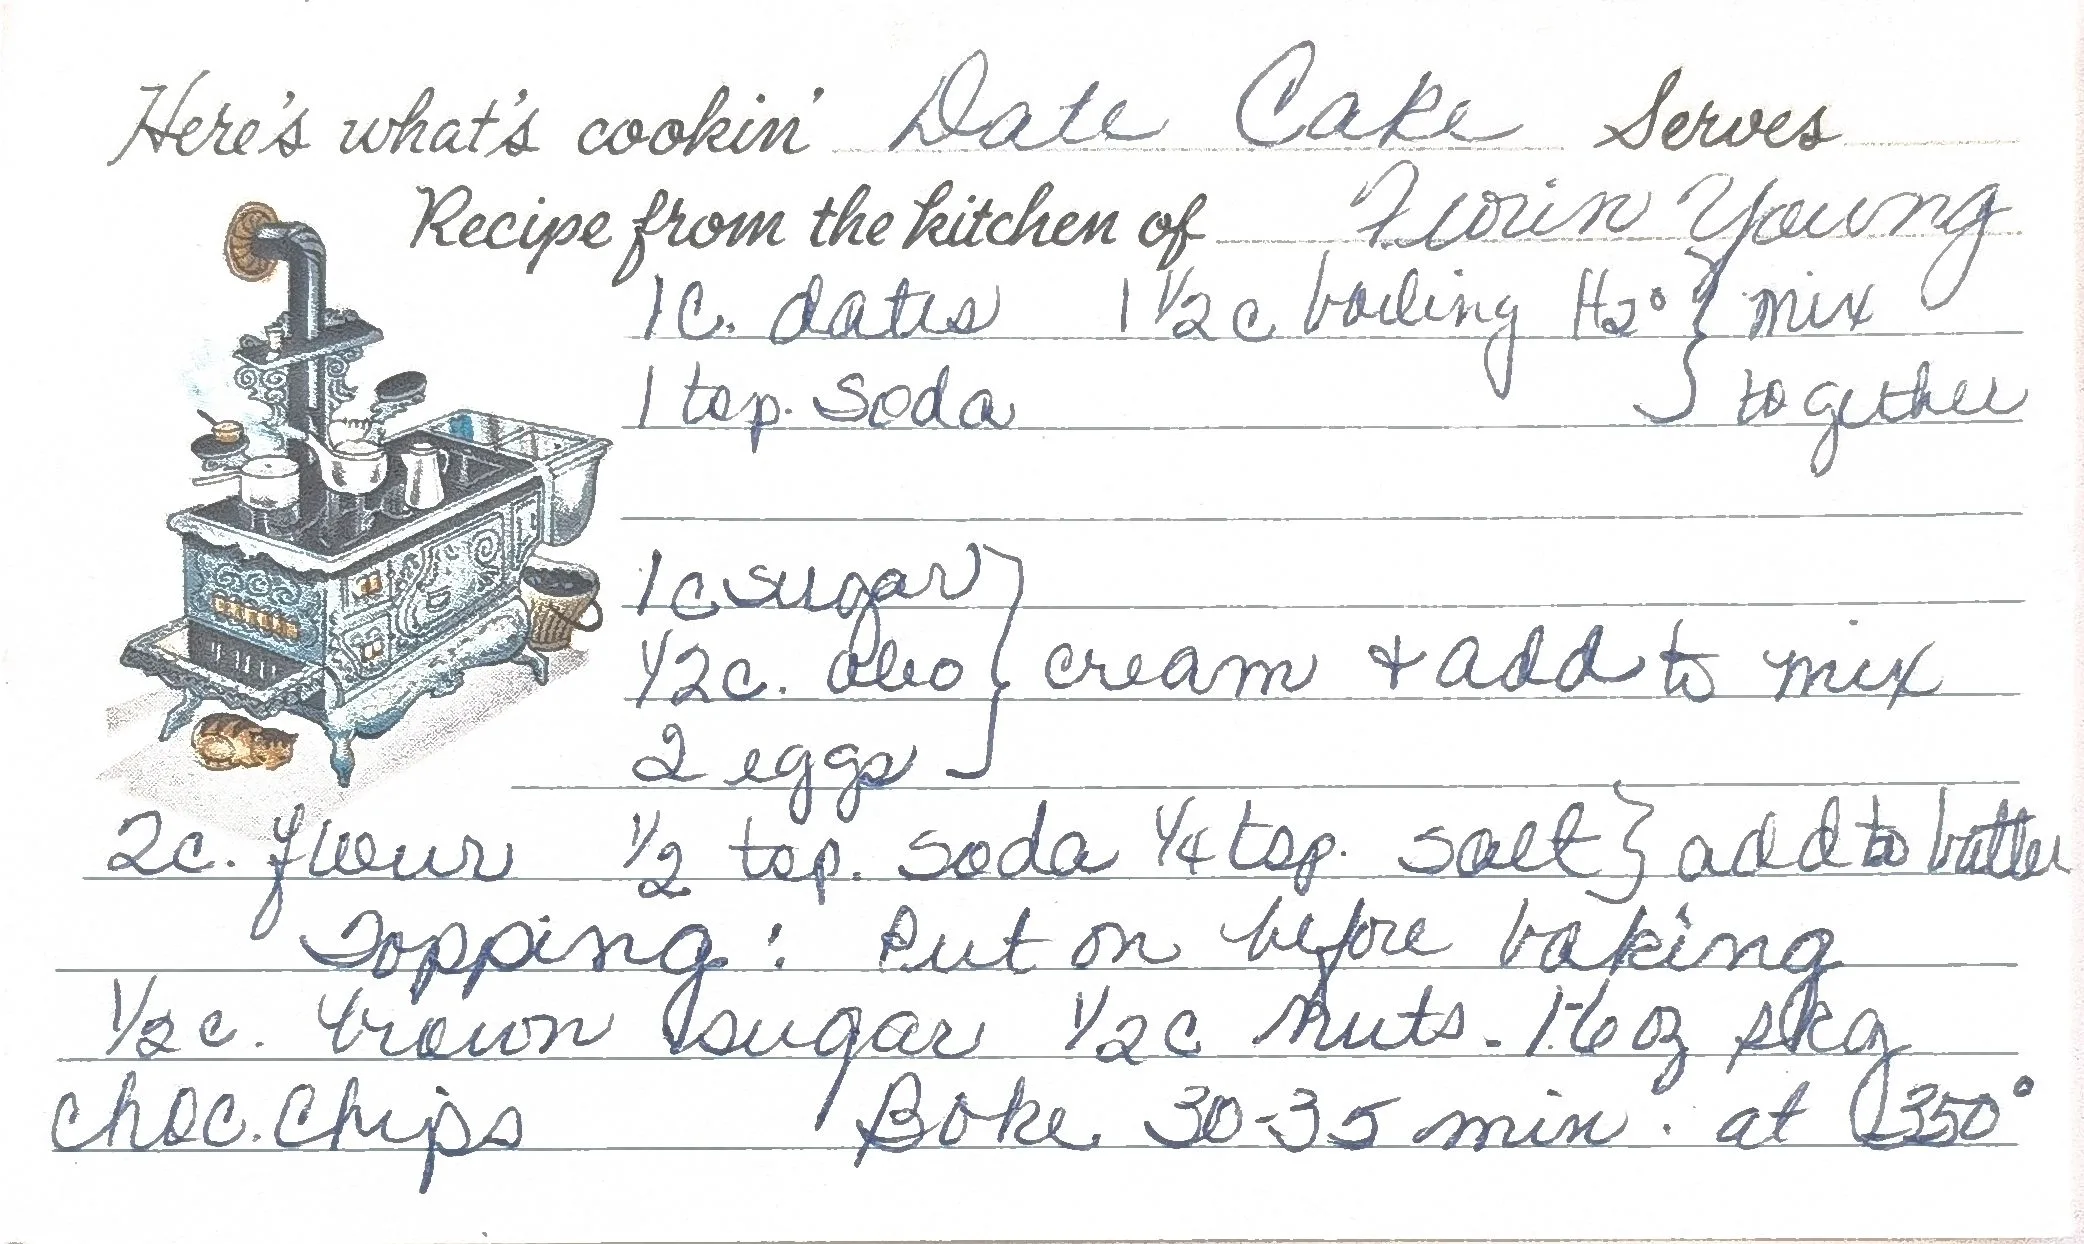 Here's what's cookin' Date Cake Serves
Recipe from the kitchen of Young
1c. dates 1 1/2c boiling H2O } mix
1 tsp. soda } together
1c sugar
1/2c. oleo } cream & add to mix
2 eggs
2c. flour 1/2 tsp. soda 1/4 tsp. salt } add to batter
Topping: Put on before baking
1/2c. brown sugar 1/2c nuts - 1-6oz pkg
choc. chips Bake 30-35 min. at 350°